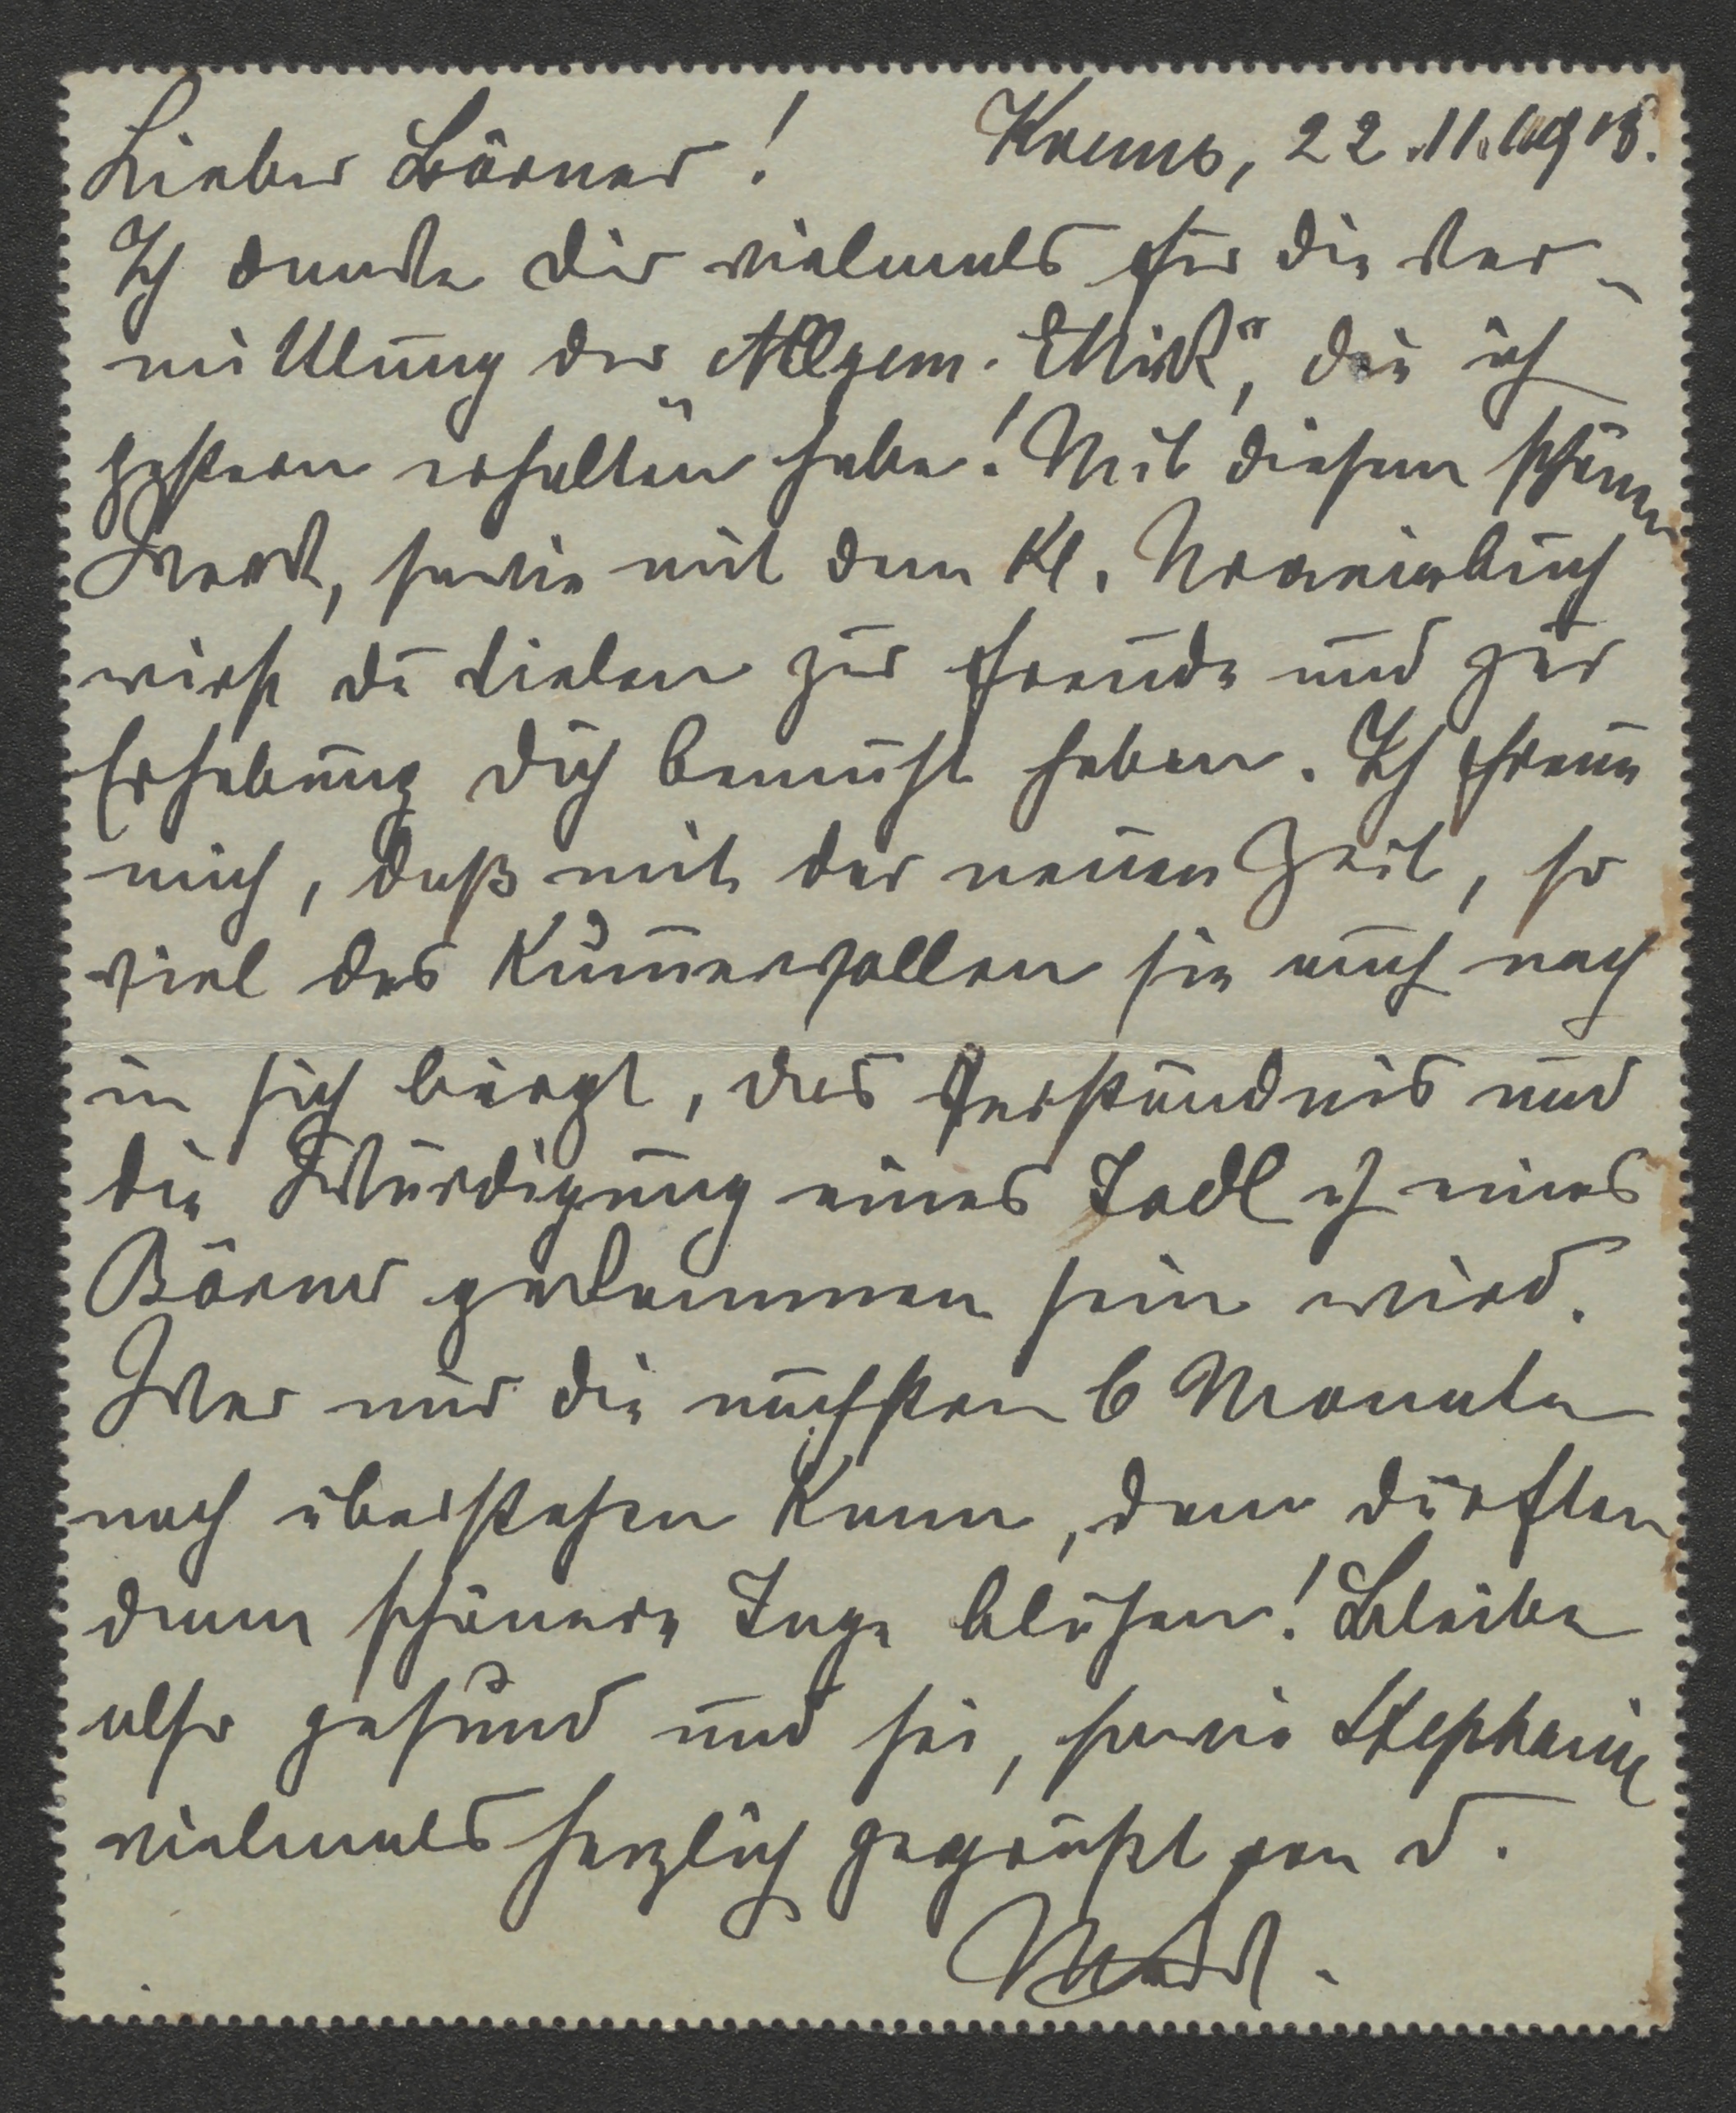 Krems, 22.11.1918.
Lieber Börner!
Ich danke dir vielmals für die Ver-
mittlung der „Allgem. Ethik“, die ich
gestern erhalten habe! Mit diesem schönen
Werk, sowie mit dem kl. Uraniabuch
wirst du Vielen zur Freude und zur
Erhebung dich bemüht haben. Ich freue
mich, daß mit der neuen Zeit, so
viel des Kummervollen sie auch noch
in sich birgt, das Verständnis und
die Würdigung eines Jodl u. eines
Börner gekommen sein wird.
Wer nur die nächsten 6 Monate
noch überstehen kann, dem dürften
dann schönere Tage blühen! Bleibe
also gesund und sei, sowie Stephanie
vielmals herzlich gegrüßt von d.